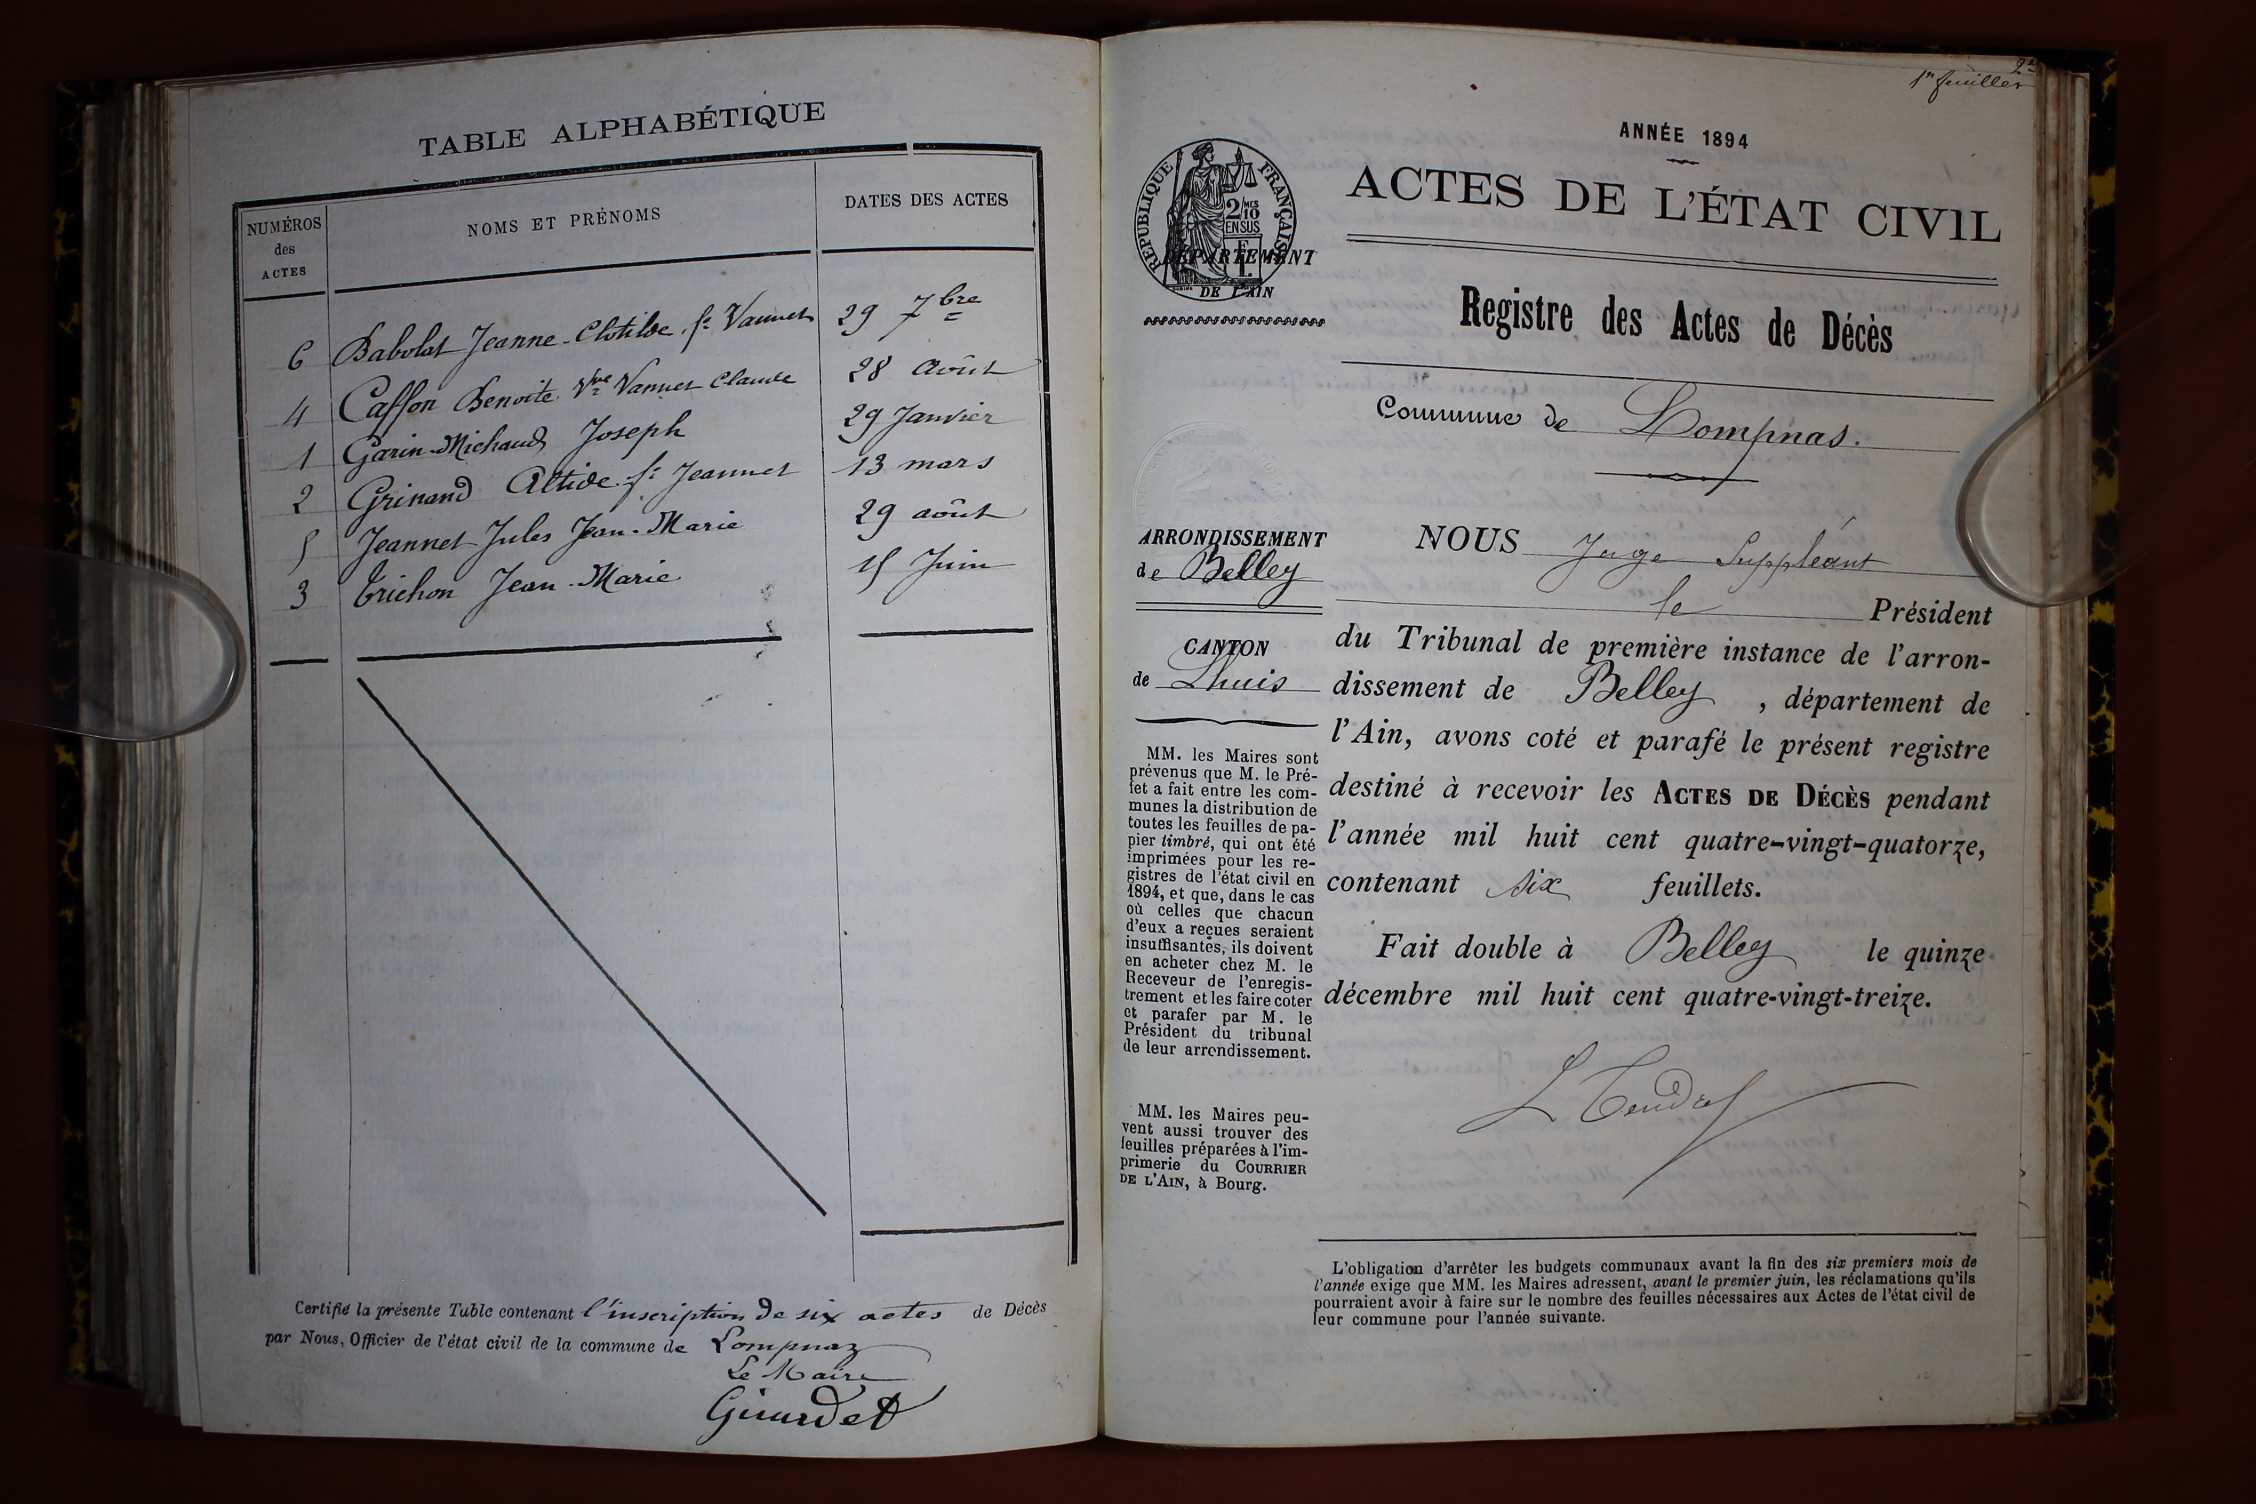 TABLE ALPHABÉTIQUE
NUMÉROS des ACTES
NOMS ET PRÉNOMS
DATES DES ACTES
6 Babolat Jeanne-Clotilde fe Vannet 29 7bre
4 Caffon Benoite Vve Vannet Claude 28 Août
1 Garin-Michaud Joseph 29 Janvier
2 Grinand Altide fe Jeannet 13 mars
5 Jeannet Jules Jean-Marie 29 août
3 Trichon Jean-Marie 15 Juin
Certifié la présente Table contenant l'inscription de six actes de Décès
par Nous, Officier de l'état civil de la commune de Lompnaz
Le Maire
Girardet
2e
1er feuillet
ANNÉE 1894
ACTES DE L'ÉTAT CIVIL
RÉPUBLIQUE FRANÇAISE
2/10 MES
EN SUS
DÉPARTEMENT
DE L'AIN
Registre des Actes de Décès
Commune de Lompnas.
ARRONDISSEMENT
de Belley
CANTON
de Lhuis
MM. les Maires sont
prévenus que M. le Pré-
fet a fait entre les com-
munes la distribution de
toutes les feuilles de pa-
pier timbré, qui ont été
imprimées pour les re-
gistres de l'état civil en
1894, et que, dans le cas
où celles que chacun
d'eux a reçues seraient
insuffisantes, ils doivent
en acheter chez M. le
Receveur de l'enregis-
trement et les faire coter
et parafer par M. le
Président du tribunal
de leur arrondissement.
MM. les Maires peu-
vent aussi trouver des
feuilles préparées à l'im-
primerie du COURRIER
DE L'AIN, à Bourg.
NOUS Juge Suppléant
le Président
du Tribunal de première instance de l'arron-
dissement de Belley, département de
l'Ain, avons coté et parafé le présent registre
destiné à recevoir les ACTES DE DÉCÈS pendant
l'année mil huit cent quatre-vingt-quatorze,
contenant six feuillets.
Fait double à Belley le quinze
décembre mil huit cent quatre-vingt-treize.
L'obligation d'arrêter les budgets communaux avant la fin des six premiers mois de
l'année exige que MM. les Maires adressent, avant le premier juin, les réclamations qu'ils
pourraient avoir à faire sur le nombre des feuilles nécessaires aux Actes de l'état civil de
leur commune pour l'année suivante.